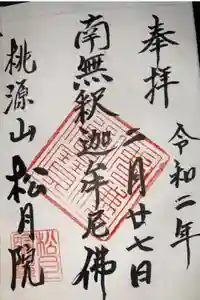 奉拝
令和二年
二月廿七日
南無釈迦牟尼佛
桃源山
松月院